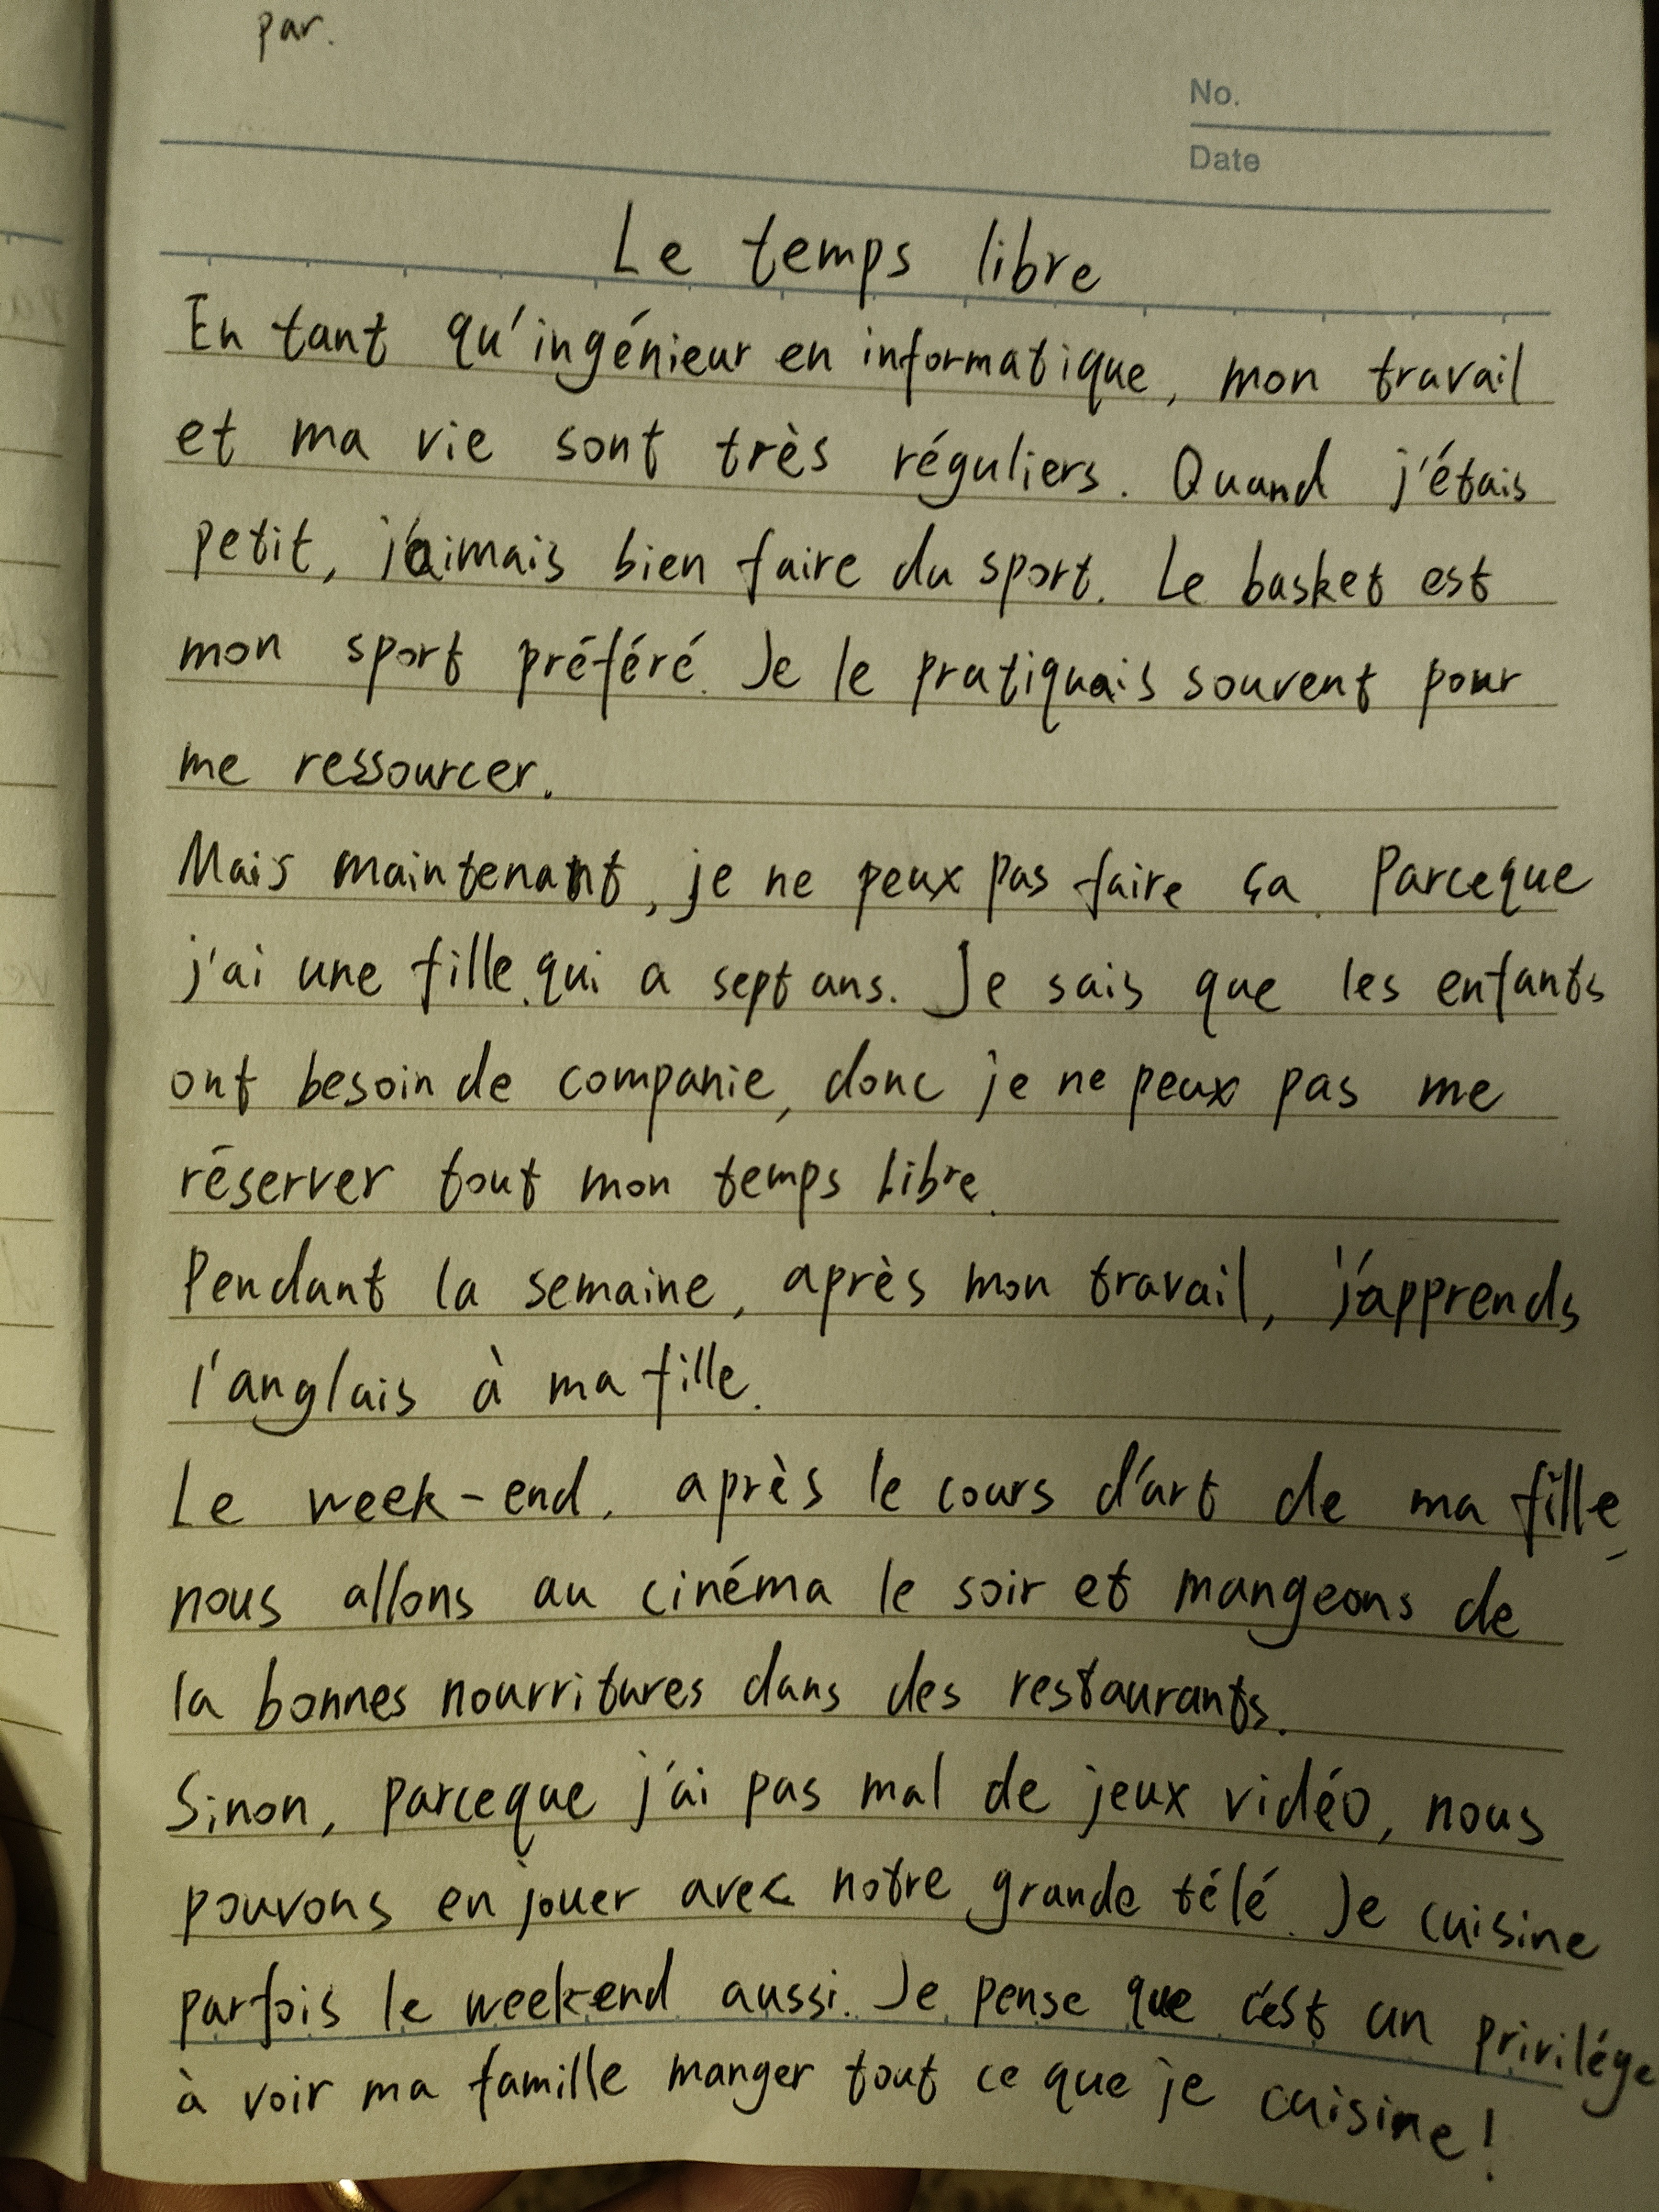 par.
No.
Date
Le temps libre
En tant qu'ingénieur en informatique, mon travail
et ma vie sont très réguliers. Quand j'étais
petit, j'aimais bien faire du sport. Le basket est
mon sport préféré. Je le pratiquais souvent pour
me ressourcer.
Mais maintenant, je ne peux pas faire ça. Parceque
j'ai une fille qui a sept ans. Je sais que les enfants
ont besoin de companie, donc je ne peux pas me
réserver tout mon temps libre.
Pendant la semaine, après mon travail, j'apprends
l'anglais à ma fille.
Le week-end, après le cours d'art de ma fille,
nous allons au cinéma le soir et mangeons de
la bonnes nourritures dans des restaurants.
Sinon, parceque j'ai pas mal de jeux vidéo, nous
pouvons en jouer avec notre grande télé. Je cuisine
parfois le week-end aussi. Je pense que c'est un privilége
à voir ma famille manger tout ce que je cuisine!